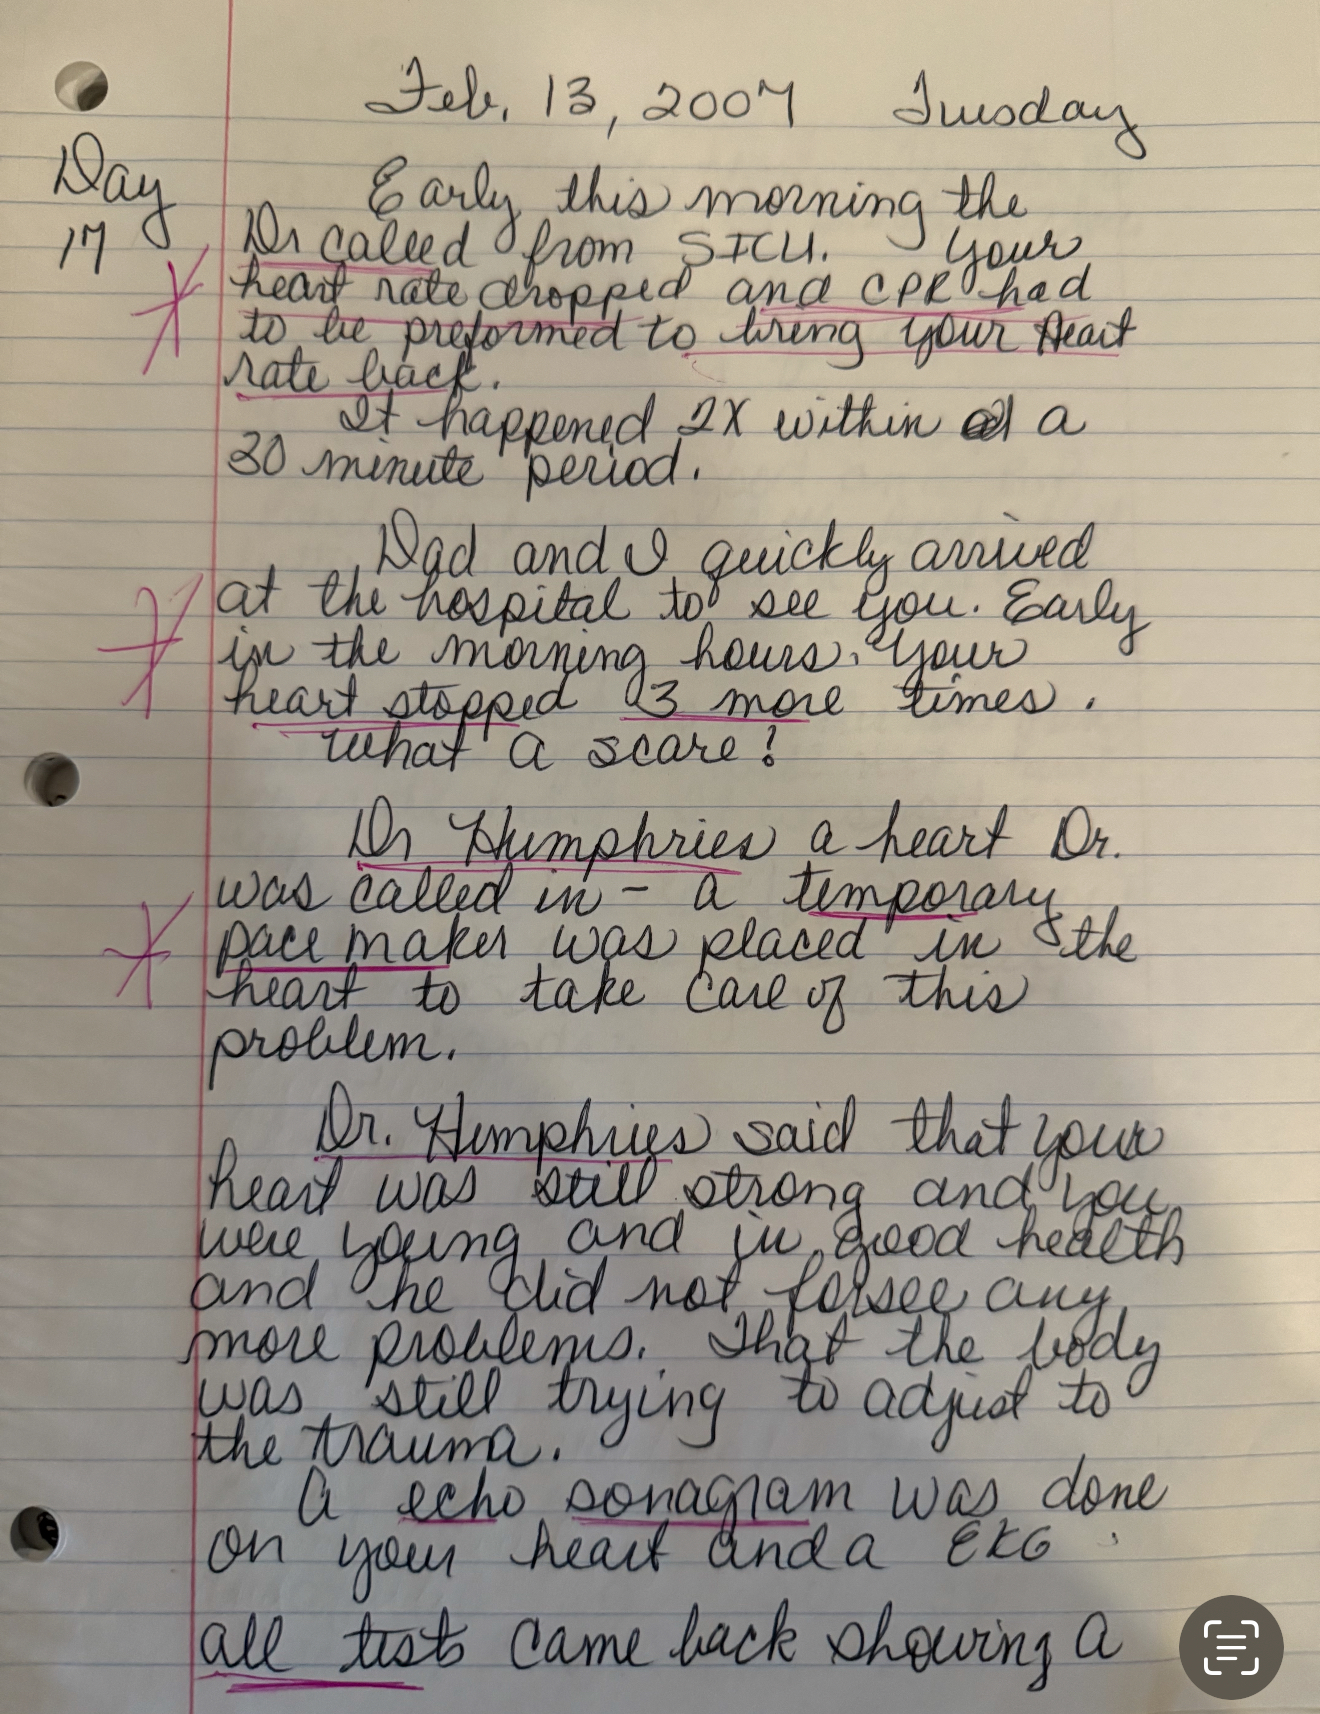 Feb. 13, 2007 Tuesday
Day
17
Early this morning the
Dr called from SICU. Your
heart rate dropped and CPR had
to be preformed to bring your Heart
rate back.
It happened 2X within a
30 minute period.
Dad and I quickly arrived
at the hospital to see you. Early
in the morning hours, your
heart stopped 3 more times.
What a scare!
Dr Humphries a heart Dr.
was called in - a temporary
pace maker was placed in the
heart to take care of this
problem.
Dr. Humphries said that your
heart was still strong and you
were young and in good health
and he did not forsee any
more problems. That the body
was still trying to adjust to
the trauma.
A echo sonagram was done
on your heart and a EKG
all tests came back showing a